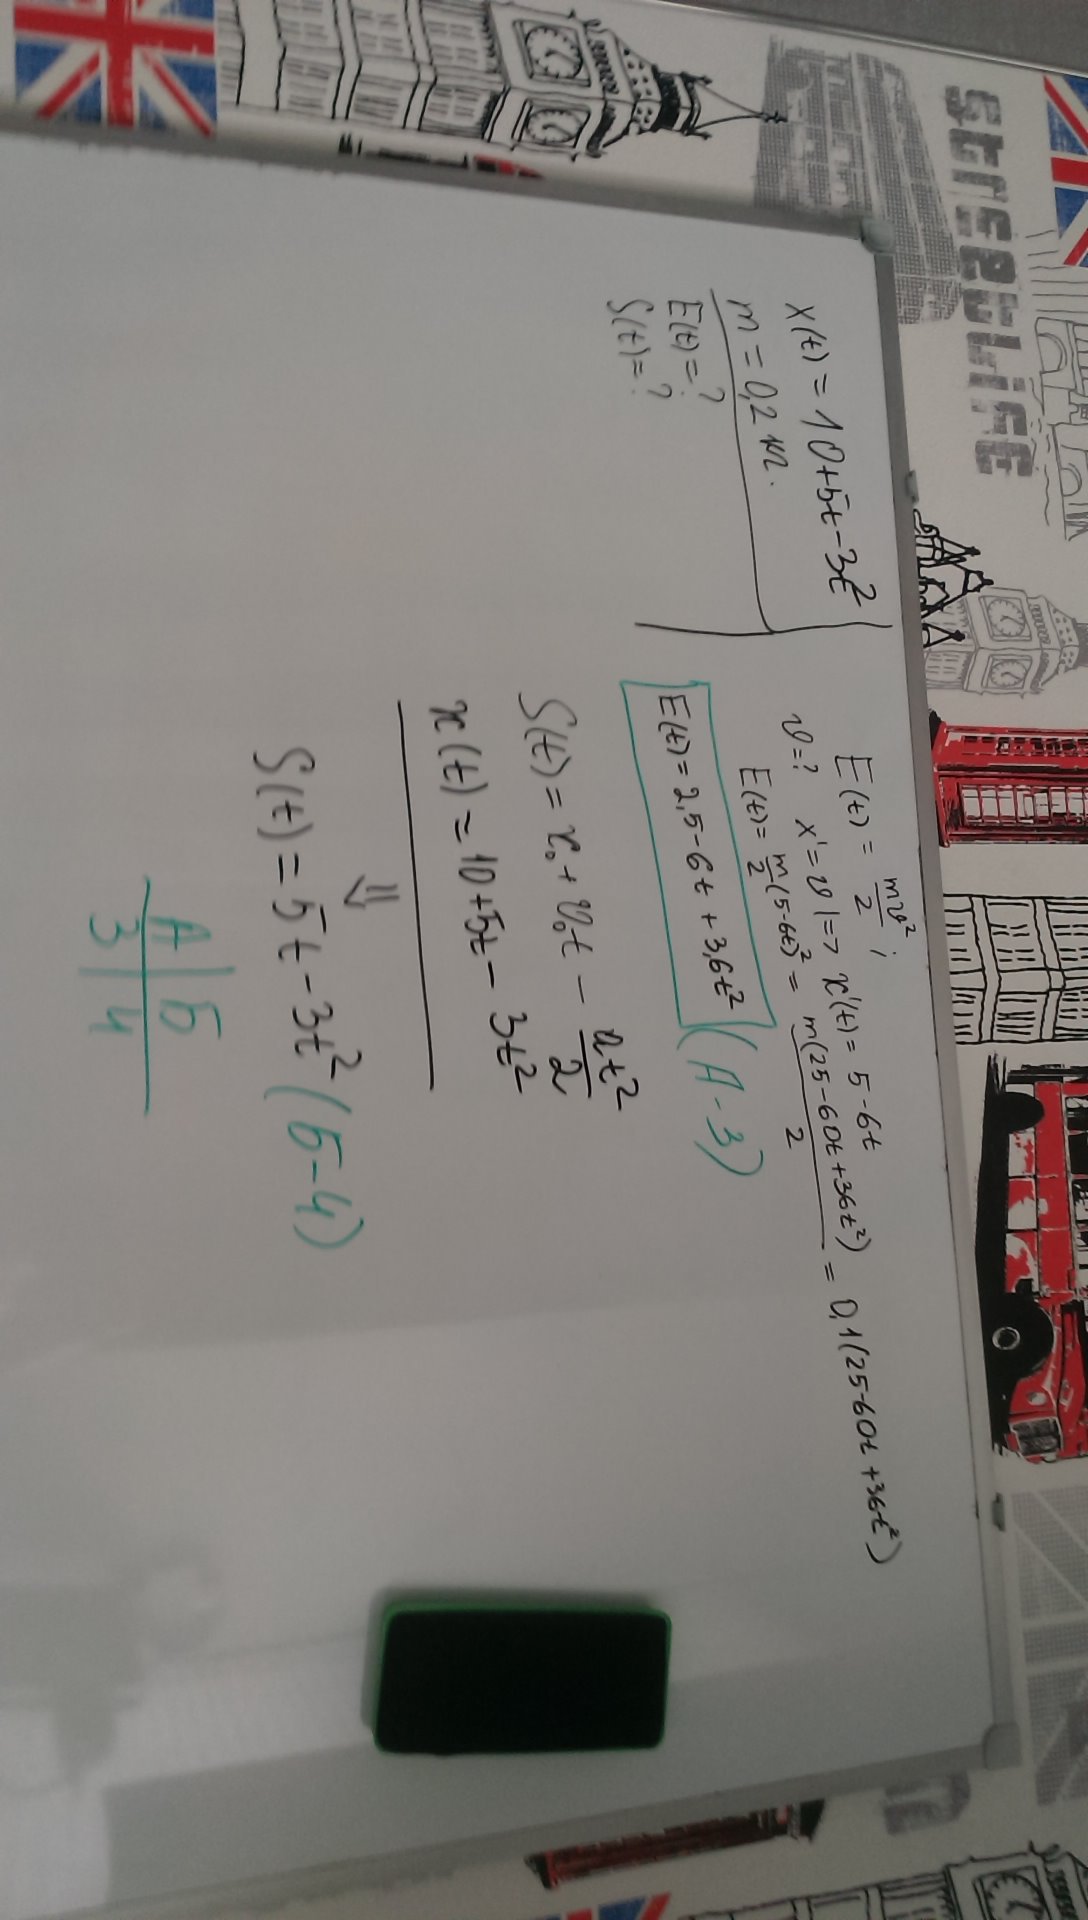 STREET LIFE
X(t) = 10+5t-3t²
m = 0,2 кг.
E(t)=?
S(t)=?
E(t) = mv²/2 ;
v=? x'=v |=> x'(t) = 5-6t
E(t)= m/2 (5-6t)² = m(25-60t+36t²)/2 = 0,1(25-60t+36t²)
E(t)=2,5-6t+3,6t² (А-3)
S(t)= x₀+v₀t - at²/2
x(t)=10+5t-3t²
⇓
S(t)=5t-3t² (Б-4)
А | Б
3 | 4